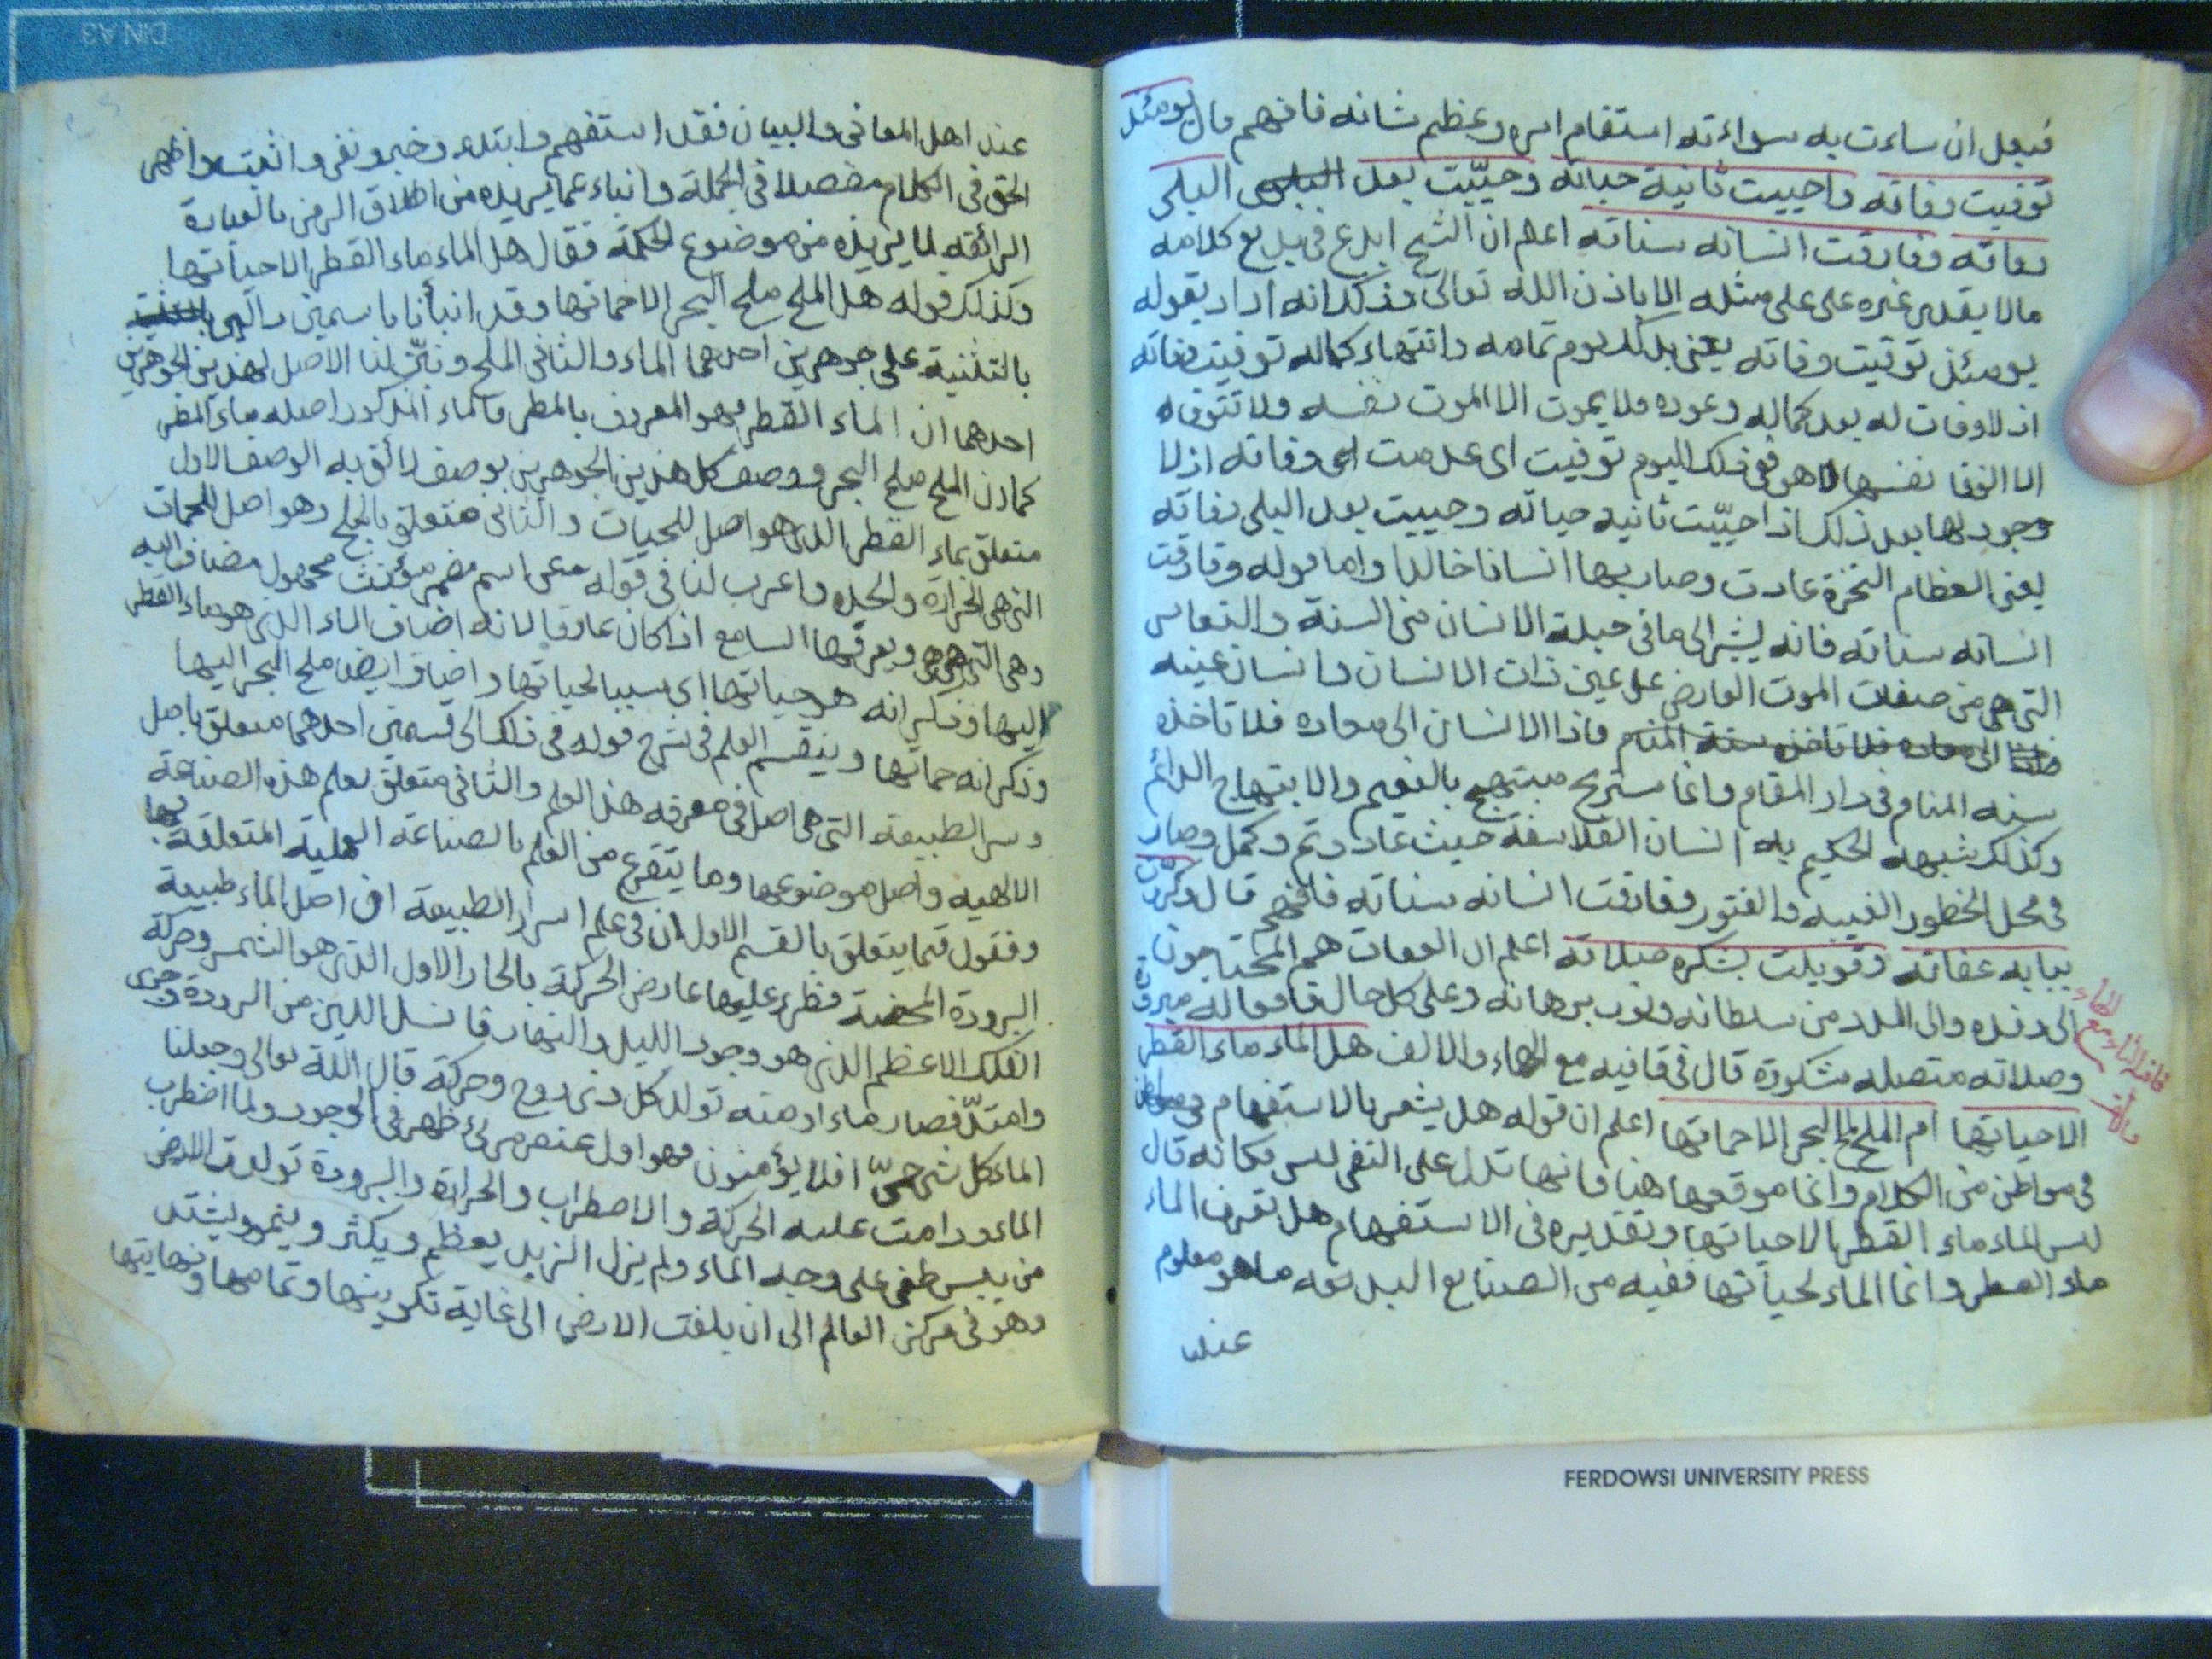 فبعل ان ساءت به سواءته استقام امره وعظم شانه فافهم قال يومئذ
توفيت وفاته واحييت ثانية حياته وحيّيت بعد البلى
رفاته وفارقت انسانه سناته اعلم ان الشيخ ابدع في بديع كلامه
مالا يقدر غيره على على مثله الا باذن الله تعالى وذكر انه اراد بقوله
يومئذ توفيت وفاته يعني بذلك يوم تمامه وانتهاء كماله توفيت وفاته
اذ لا وفات له بعد كماله وعوده ولا يموت الا الموت نفسه ولا تتوفاه
الا الوفا نفسها هو في ذلك اليوم توفيت اى عدمت اى وفاته اذ لا
وجود لها بعد ذلك اذ احيّيت ثانيه حياته وحييت بعد البلى رفاته
يعنى العظام النخرة عادت وصار بها انسانا خالدا واما قوله وفارقت
انسانه سناته فانه يشير الى ما في جبلة الانسان من السنة والنعاس
التى هى من صفات الموت العارض على عين ذات الانسان وانسان عينه
فاذا الانسان الى معاده فلا تاخذه
سنه المنام في دار المقام وانما مستريح مبتهج بالنعيم والابتهاج الدائم
وكذلك شبهه الحكيم به انسان الفلاسفة حيث عاد وتم وكمل وصار
في محل الخطور الغيبه والفتور وفارقت انسانه سناته فافهم قال وكثرت
ببابه عفاته وقوبلت بشكره صلاته اعلم ان العفات هم المحتاجون
الى رفده والى المدد من سلطانه ونور برهانه وعلى كل حال قافواله مبروة
وصلاته متصله مشكورة قال في قافيه مع الهاء والالف هل الماء ماء القطر
الا حياتها ام الملح ملح البحر الا حماتها اعلم ان قوله هل يشعر بالاستفهام في مواطن
في مواطن من الكلام وانما موقعها هنا فانها تدل على النفي ليس فكانه قال
ليس الماء ماء القطر الا حياتها وتقديره في الاستفهام هل تعرف الماء
ماء القطر وانما الماء لحياتها ففيه من الصنايع البديعه ما هو معلوم
عند
قافية التاء مع الهاء
والالف
عند اهل المعانى والبيان فقد استفهم وابتدء وخبر ونفى واثبت واظهر
الحق في الكلام مفصلا في الجملة وانباء عما يريده من اطلاق الرمز بالعبارة
الرائقه لما يريده من موضوع الحكمة فقال هل الماء ماء القطر الا حياتها
وكذلك قوله هل الملح ملح البحر الا حماتها وقد انبأنا باسمين
بالتثنية على جوهرين احدهما الماء والثانى الملح وبيّن لنا الاصل لهذين الجوهرين
احدهما ان الماء القطر وهو المعروف بالمطر فالماء المذكور اصله ماء المطر
كما ان الملح ملح البحر ووصف كل هذين الجوهرين بوصف لائق به الوصف الاول
متعلق بماء القطر الذى هو اصل للحيات والثانى متعلق بالملح وهو اصل للحمات
التى هى الحرارة والحده واعرب لنا في قوله عن اسم مضمر مؤنث مجهول مضاف اليه
وهى التى هى ويعرفها السامع اذا كان عارفا لانه اضاف الماء الذى هو ماء القطر
اليها وذكر انه هو حياتها اى سببا لحياتها واضاف ايضا ملح البحر اليها
وذكر انه حماتها وينقسم العلم في شرح قوله في ذلك الى قسمين احدهما متعلق باصل
وسر الطبيعه التى هى اصل في معرفه هذا العلم والثانى متعلق بعلم هذه الصناعة
الالهيه واصل موضوعها وما يتفرع من العلم بالصناعة العمليه المتعلقة بها
ونقول فيما يتعلق بالقسم الاول ان في علم اسرار الطبيعة ان اصل الماء طبيعة
البرودة المحضة فطرء عليها عارض الحركة بالحار الاول الذى هو الشمس وحركة
الفلك الاعظم الذى هو وجود الليل والنهار فانسل اللين من البرودة وجرى
وامتدّ فصار ماء ومنه تولد كل ذى روح وحركة قال الله تعالى وجعلنا
الماء كل شى حىّ افلا يؤمنون فهو اول عنصر مرئ ظهر في الوجود ولما اضطرب
الماء ودامت عليه الحركة والاضطراب والحرارة والبرودة تولدت الارض
من يبس طفى على وجه الماء ولم يزل الزبد يعظم ويكثر وينمو ويشتد
وهو في مركز العالم الى ان بلغت الارض الى غاية تكوينها وتمامها ونهايتها
FERDOWSI UNIVERSITY PRESS
DIN A3